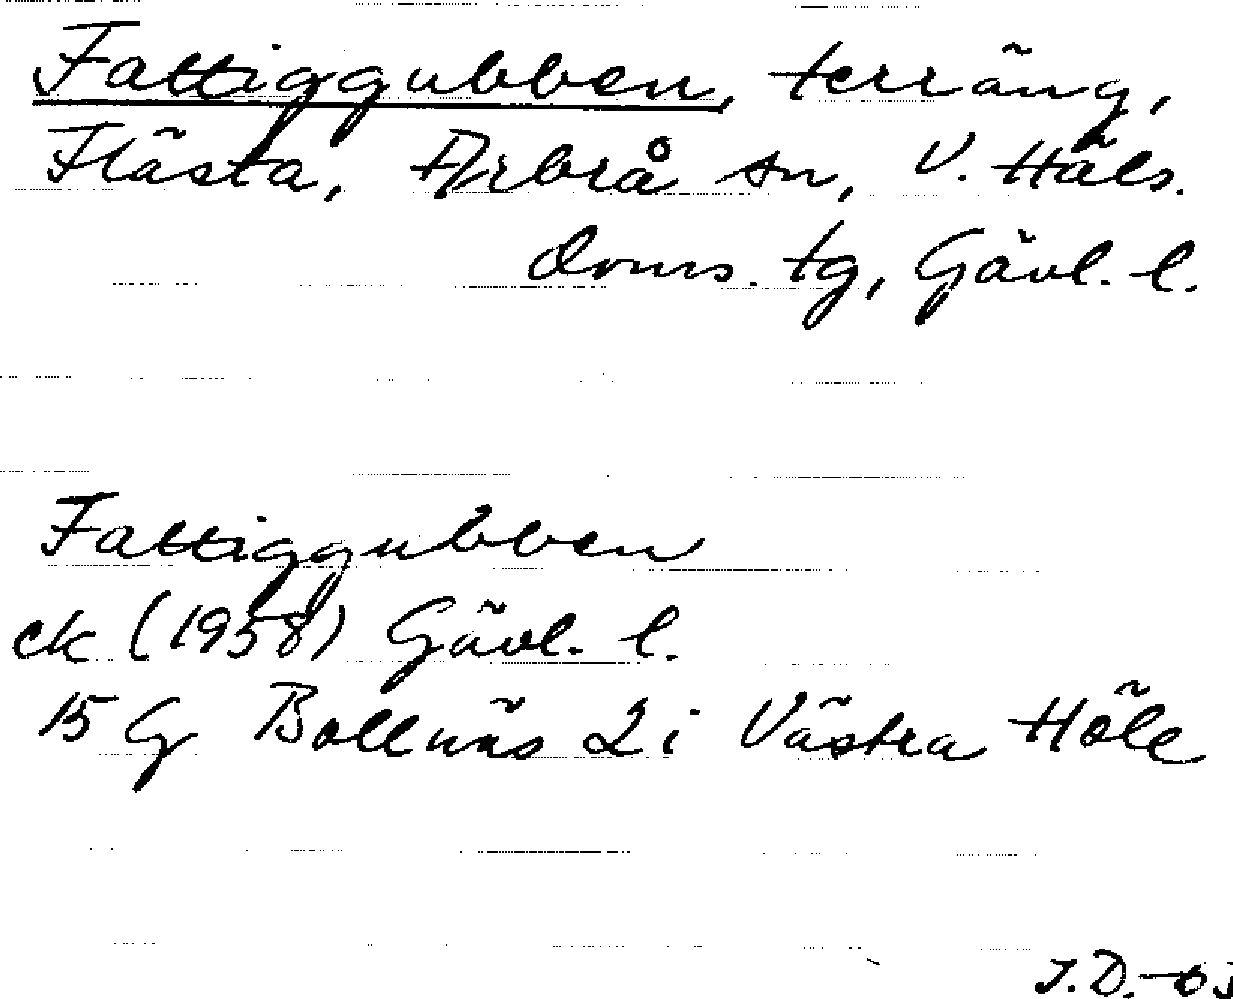 Fattiggubben, terräng,
Flästa, Arbrå sn, V. Häls.
Doms. tg, Gävl. l.
Fattiggubben
ek (1958) Gävl. l.
15 G Bollnäs 2 i Västra Häll
J.D.